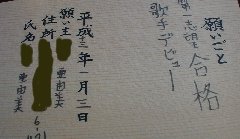 願いごと
第一志望合格
歌手デビュー
平成十三年一月三日
願い主 亜由美
住所
氏名 亜由美